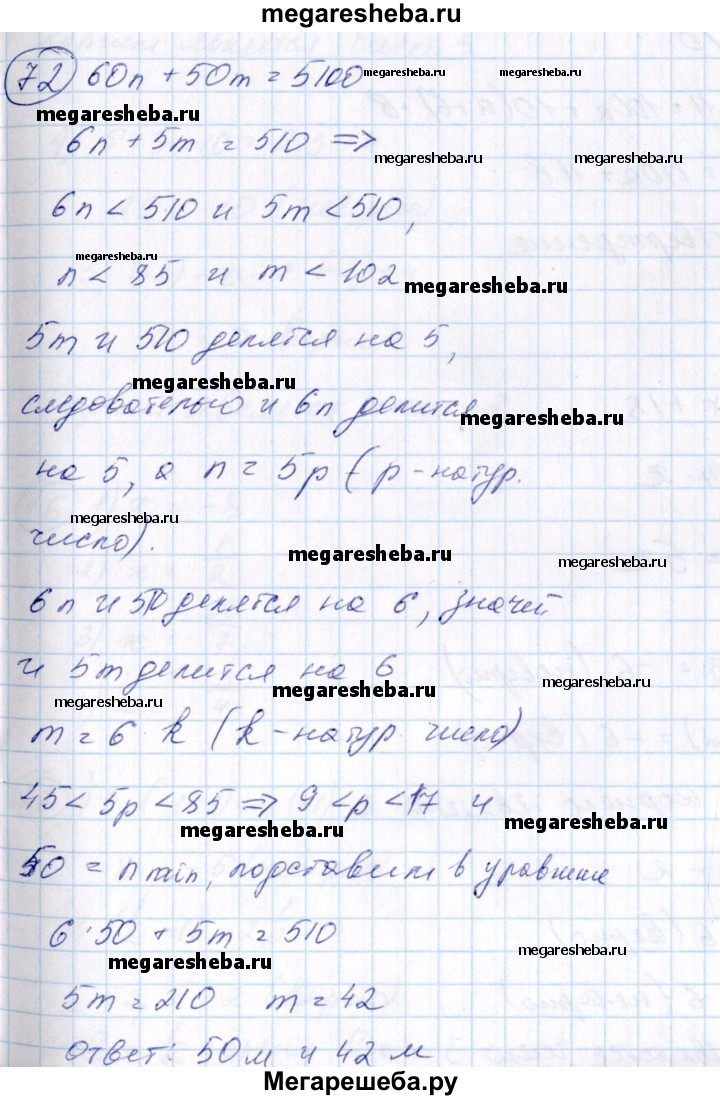 megaresheba.ru
72) 60n + 50m = 5100 megaresheba.ru megaresheba.ru
megaresheba.ru
6n + 5m = 510 =>
megaresheba.ru megaresheba.ru
6n < 510 и 5m < 510,
megaresheba.ru
n < 85 и m < 102 megaresheba.ru
5m и 510 делятся на 5,
megaresheba.ru
следовательно и 6n делится
megaresheba.ru
на 5, а n = 5p (p - натур.
megaresheba.ru
число). megaresheba.ru
megaresheba.ru
6n и 510 делятся на 6, значит
и 5m делится на 6
megaresheba.ru megaresheba.ru
megaresheba.ru
m = 6 k (k - натур число)
45 < 5p < 85 => 9 < p < 17 и
megaresheba.ru megaresheba.ru
50 = n min, подставим в уравнение
6·50 + 5m = 510
megaresheba.ru megaresheba.ru
5m = 210 m = 42
ответ: 50м и 42 м
Мегарешеба.ру